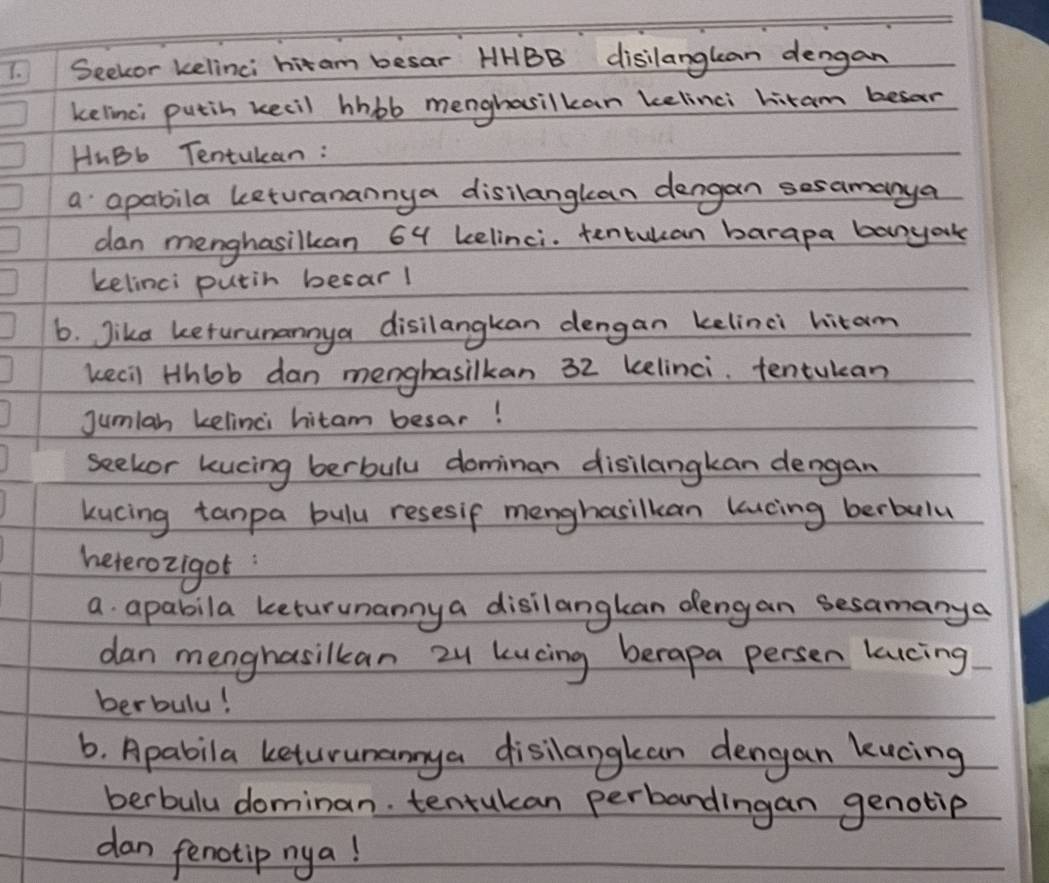 1. Seekor kelinci hitam besar HHBB disilangkan dengan
kelinci putih kecil hhbb menghasilkan kelinci hitam besar
HhBb Tentukan:
a. apabila keturanannya disilangkan dengan sesamanya
dan menghasilkan 64 kelinci. tentukan barapa banyak
kelinci putih besar!
b. Jika keturunannya disilangkan dengan kelinci hitam
kecil Hhbb dan menghasilkan 32 kelinci. tentukan
Jumlah kelinci hitam besar!
seekor kucing berbulu dominan disilangkan dengan
kucing tanpa bulu resesif menghasilkan kucing berbulu
heterozigot:
a. apabila keturunannya disilangkan dengan sesamanya
dan menghasilkan 24 kucing berapa persen kucing
berbulu!
b. Apabila keturunannya disilangkan dengan kucing
berbulu dominan. tentukan perbandingan genotip
dan fenotip nya!